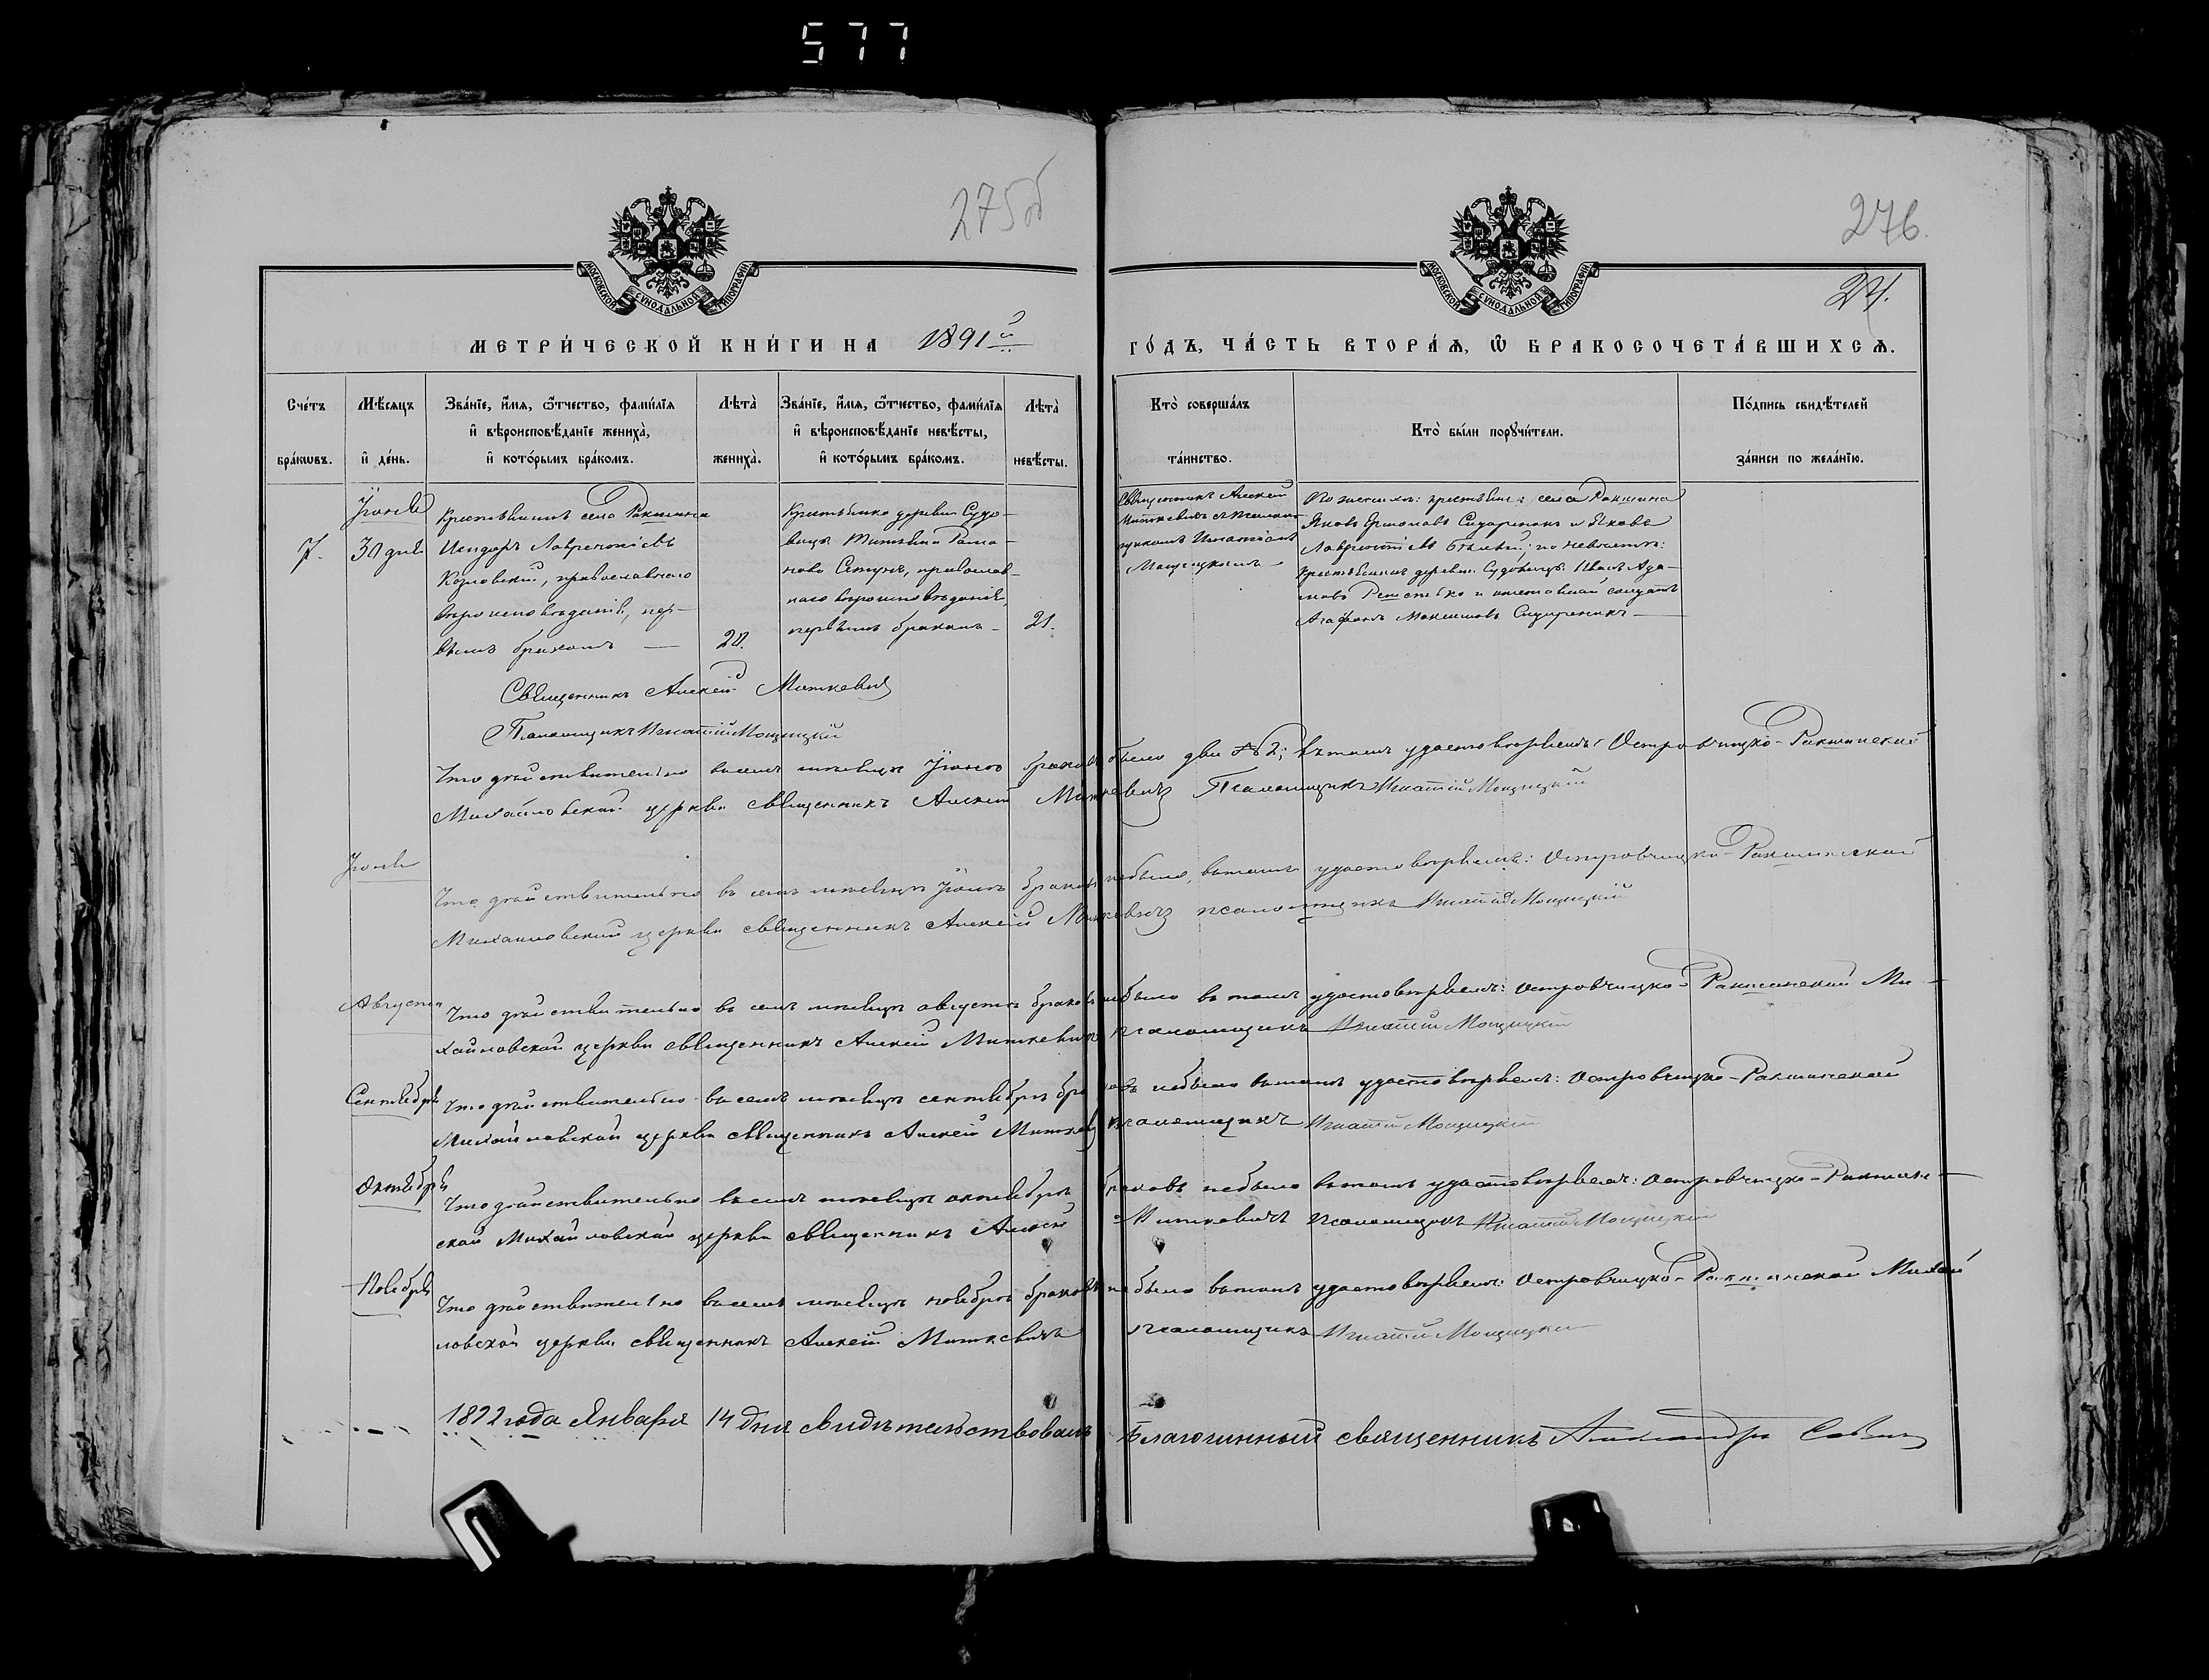 577
275об
276.
24.
МОСКОВСКОЙ СУНОДАЛЬНОЙ ТИПОГРАФІИ
МОСКОВСКОЙ СУНОДАЛЬНОЙ ТИПОГРАФІИ
МЕТРИ́ЧЕСКОЙ КНИ́ГИ НА 1891й
ГО́ДЪ, ЧА́СТЬ ВТОРА́Ѧ, Ѽ БРАКОСОЧЕТА́ВШИХСѦ.
Сче́тъ бра́кѡвъ.
Мѣ́сѧцъ и҆ де́нь.
Зва́нїе, и҆́мѧ, ѻ҆́тчество, фами́лїѧ и҆ вѣроисповѣ́данїе жениха̀, и҆ кото́рымъ бра́комъ.
Лѣта̀ жениха̀.
Зва́нїе, и҆́мѧ, ѻ҆́тчество, фами́лїѧ и҆ вѣроисповѣ́данїе невѣ́сты, и҆ кото́рымъ бра́комъ.
Лѣта̀ невѣ́сты.
Кто̀ соверша́лъ та́инство.
Кто̀ бы́ли порꙋчи́тели.
По́дпись свидѣ́телей за́писи по жела́нїю.
Іюня
7.
30 дня
Крестьянинъ села Ракшина
Исидоръ Лаврентіевъ
Козловскій, православнаго
вѣроисповѣданія, пер-
вымъ бракомъ —
20.
Крестьянка деревни
наго вѣроисповѣданія,
первымъ бракомъ —
21.
Священникъ Алексій
Миткевичъ съ псалом-
щикомъ Игнатіемъ
Мощицкимъ —
По женихѣ: крестьяне: села Ракшина
Яковъ Сидаренокъ и Яковъ
Лаврентіевъ по невѣстѣ:
крестьянинъ деревни Иванъ Ада-
мовъ и отставной солдатъ
Агафонъ Максимовъ Сидаренокъ —
Священникъ Алексій Миткевичъ
Псаломщикъ Игнатій Мощицкій
Что дѣйствительно въ семъ мѣсяцѣ Іюнѣ браковъ было два № 2; въ томъ удостовѣряемъ: Островчицко-Ракшинской
Михайловской церкви священникъ Алексій Миткевичъ Псаломщикъ Игнатій Мощицкій
Іюль
Что дѣйствительно въ семъ мѣсяцѣ Іюлѣ браковъ небыло, въ томъ удостовѣряемъ: Островчицко-Ракшинской
Михаиловской церкви священникъ Алексій Миткевичъ псаломщикъ Игнатій Мощицкій
Августъ
Что дѣйствительно въ семъ мѣсяцѣ августѣ браковъ небыло въ томъ удостовѣряемъ: Островчицко-Ракшинской Ми-
хайловской церкви священникъ Алексій Миткевичъ псаломщикъ Игнатій Мощицкій
Сентябрь
Что дѣйствительно въ семъ мѣсяцѣ сентябрѣ браковъ небыло въ томъ удостовѣряемъ: Островчицко-Ракшинской
Михайловской церкви священникъ Алексій Миткевичъ псаломщикъ Игнатій Мощицкій
Октябрь
Что дѣйствительно въ семъ мѣсяцѣ октябрѣ браковъ небыло въ томъ удостовѣряемъ: Островчицко-Ракшин-
ской Михайловской церкви священникъ Алексій Миткевичъ псаломщикъ Игнатій Мощицкій
Ноябрь
Что дѣйствительно въ семъ мѣсяцѣ ноябрѣ браковъ небыло въ томъ удостовѣряемъ: Островчицко-Ракшинской Михай
ловской церкви священникъ Алексій Миткевичъ псаломщикъ Игнатій Мощицкій
1892 года Января 14 дня свидѣтельствовалъ Благочинный священникъ Александръ